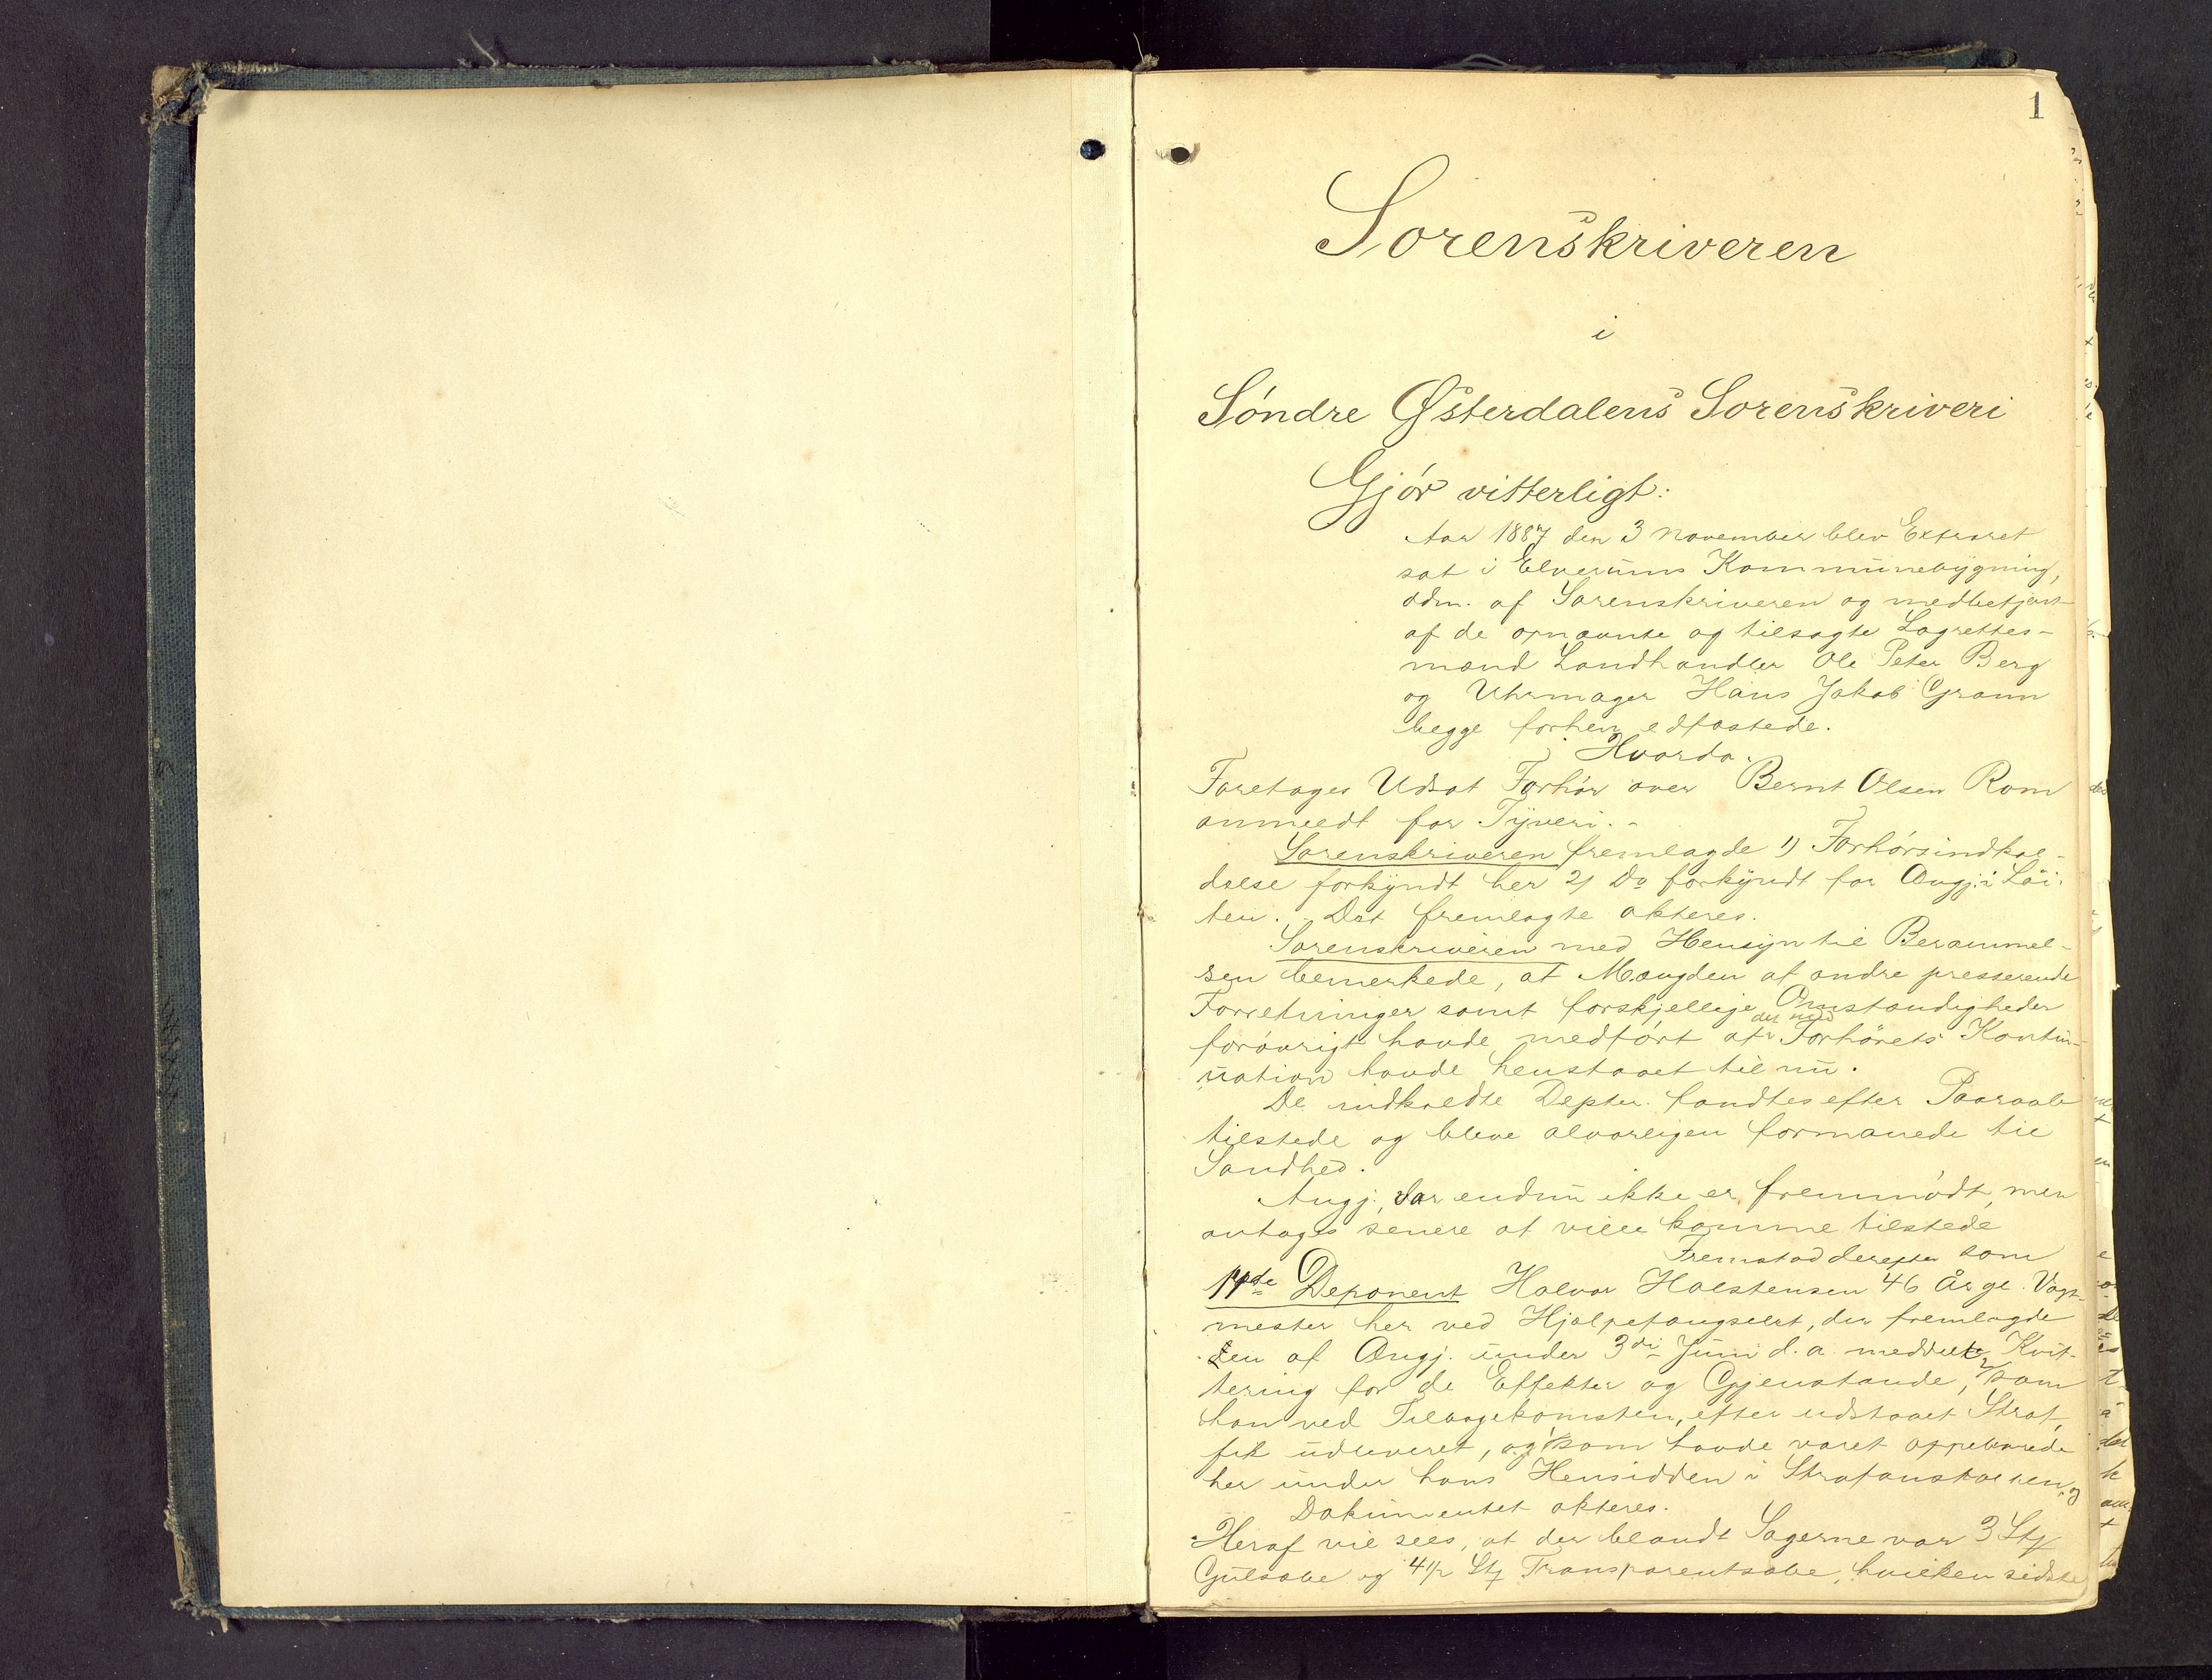 1
Sorenskriveren
i
Søndre Østerdalens Sorenskriveri
Gjør vitterligt:
Aar 1887 den 3 November blev Extraret
sat i Elverums Kommunebygning,
adm. af Sorenskriveren og medbetjent
af de opnævnte og tilsagte Lagrettes-
mænd Landhandler Ole Peter Berg
og Uhrmager Hans Jakob Gramm
begge forhen edfæstede.
Hvorda.
Foretages Udsat Forhør over Bernt Olsen Rom
anmeldt for Tyveri.-
Sorenskriveren fremlagde 1) Forhørsindkal-
delse forkyndt her 2) Do forkyndt for Angj. i Løi-
ten. Det fremlagte akteres.
Sorenskriveren med Hensyn til Berammel-
sen bemerkede, at Mængden af andre presserende
Forretninger samt forskjellige Omstændigheder
forøvrigt havde medført at der med Forhørets Kontin-
uation havde henstaaet til nu.
De indkaldte Depter. fandtes efter Paaraab
tilstede og bleve alvorligen formanede til
Sandhed.
Angj. var endnu ikke er fremmødt, men
antages senere at ville komme tilstede
Fremstod derefter som
11te Deponent Halvor Halstensen 46 År gl. Vagt-
mester her ved Hjælpefængselet, der fremlagde
den af Angj. under 3die Juni d.a. meddelte Kvit-
tering for de Effekter og Gjenstande, som
han ved Tilbagekomsten, efter udstaaet Straf,
fik udleveret, og som havde været oppebevarede
her under hans Hensidden i Strafanstalten.
Dokumentet akteres.
Heraf vil sees, at der blandt Sagerne var 3 Stk
Gulsæbe og 4 1/2 Stk Transparentsæbe, hvilken sidste